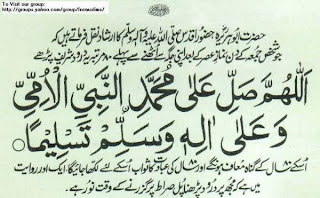 To Visit our group:
http://groups.yahoo.com/group/freemuslims/
حضرت ابوہریرہؓ حضور اقدس صلی اللہ علیہ وآلہٖ وسلم کا ارشاد نقل فرماتے ہیں کہ
جو شخص جمعہ کے دن نماز عصر کے بعد اپنی جگہ سے اٹھنے سے پہلے ۸۰ مرتبہ یہ درود شریف پڑھے
اَللّٰهُمَّ صَلِّ عَلٰى مُحَمَّدِ النَّبِيِّ الْاُمِّيِّ
وَعَلٰى اٰلِهٖ وَسَلِّمْ تَسْلِيْمًا
اسکے ۸۰ سال کے گناہ معاف ہونگے اور ۸۰ سال کی عبادت کا ثواب اسکے لئے لکھا جائیگا۔ ایک اور روایت
میں ہے کہ مجھ پر درود پڑھنا پل صراط پر گزرنے کے وقت نور ہے۔